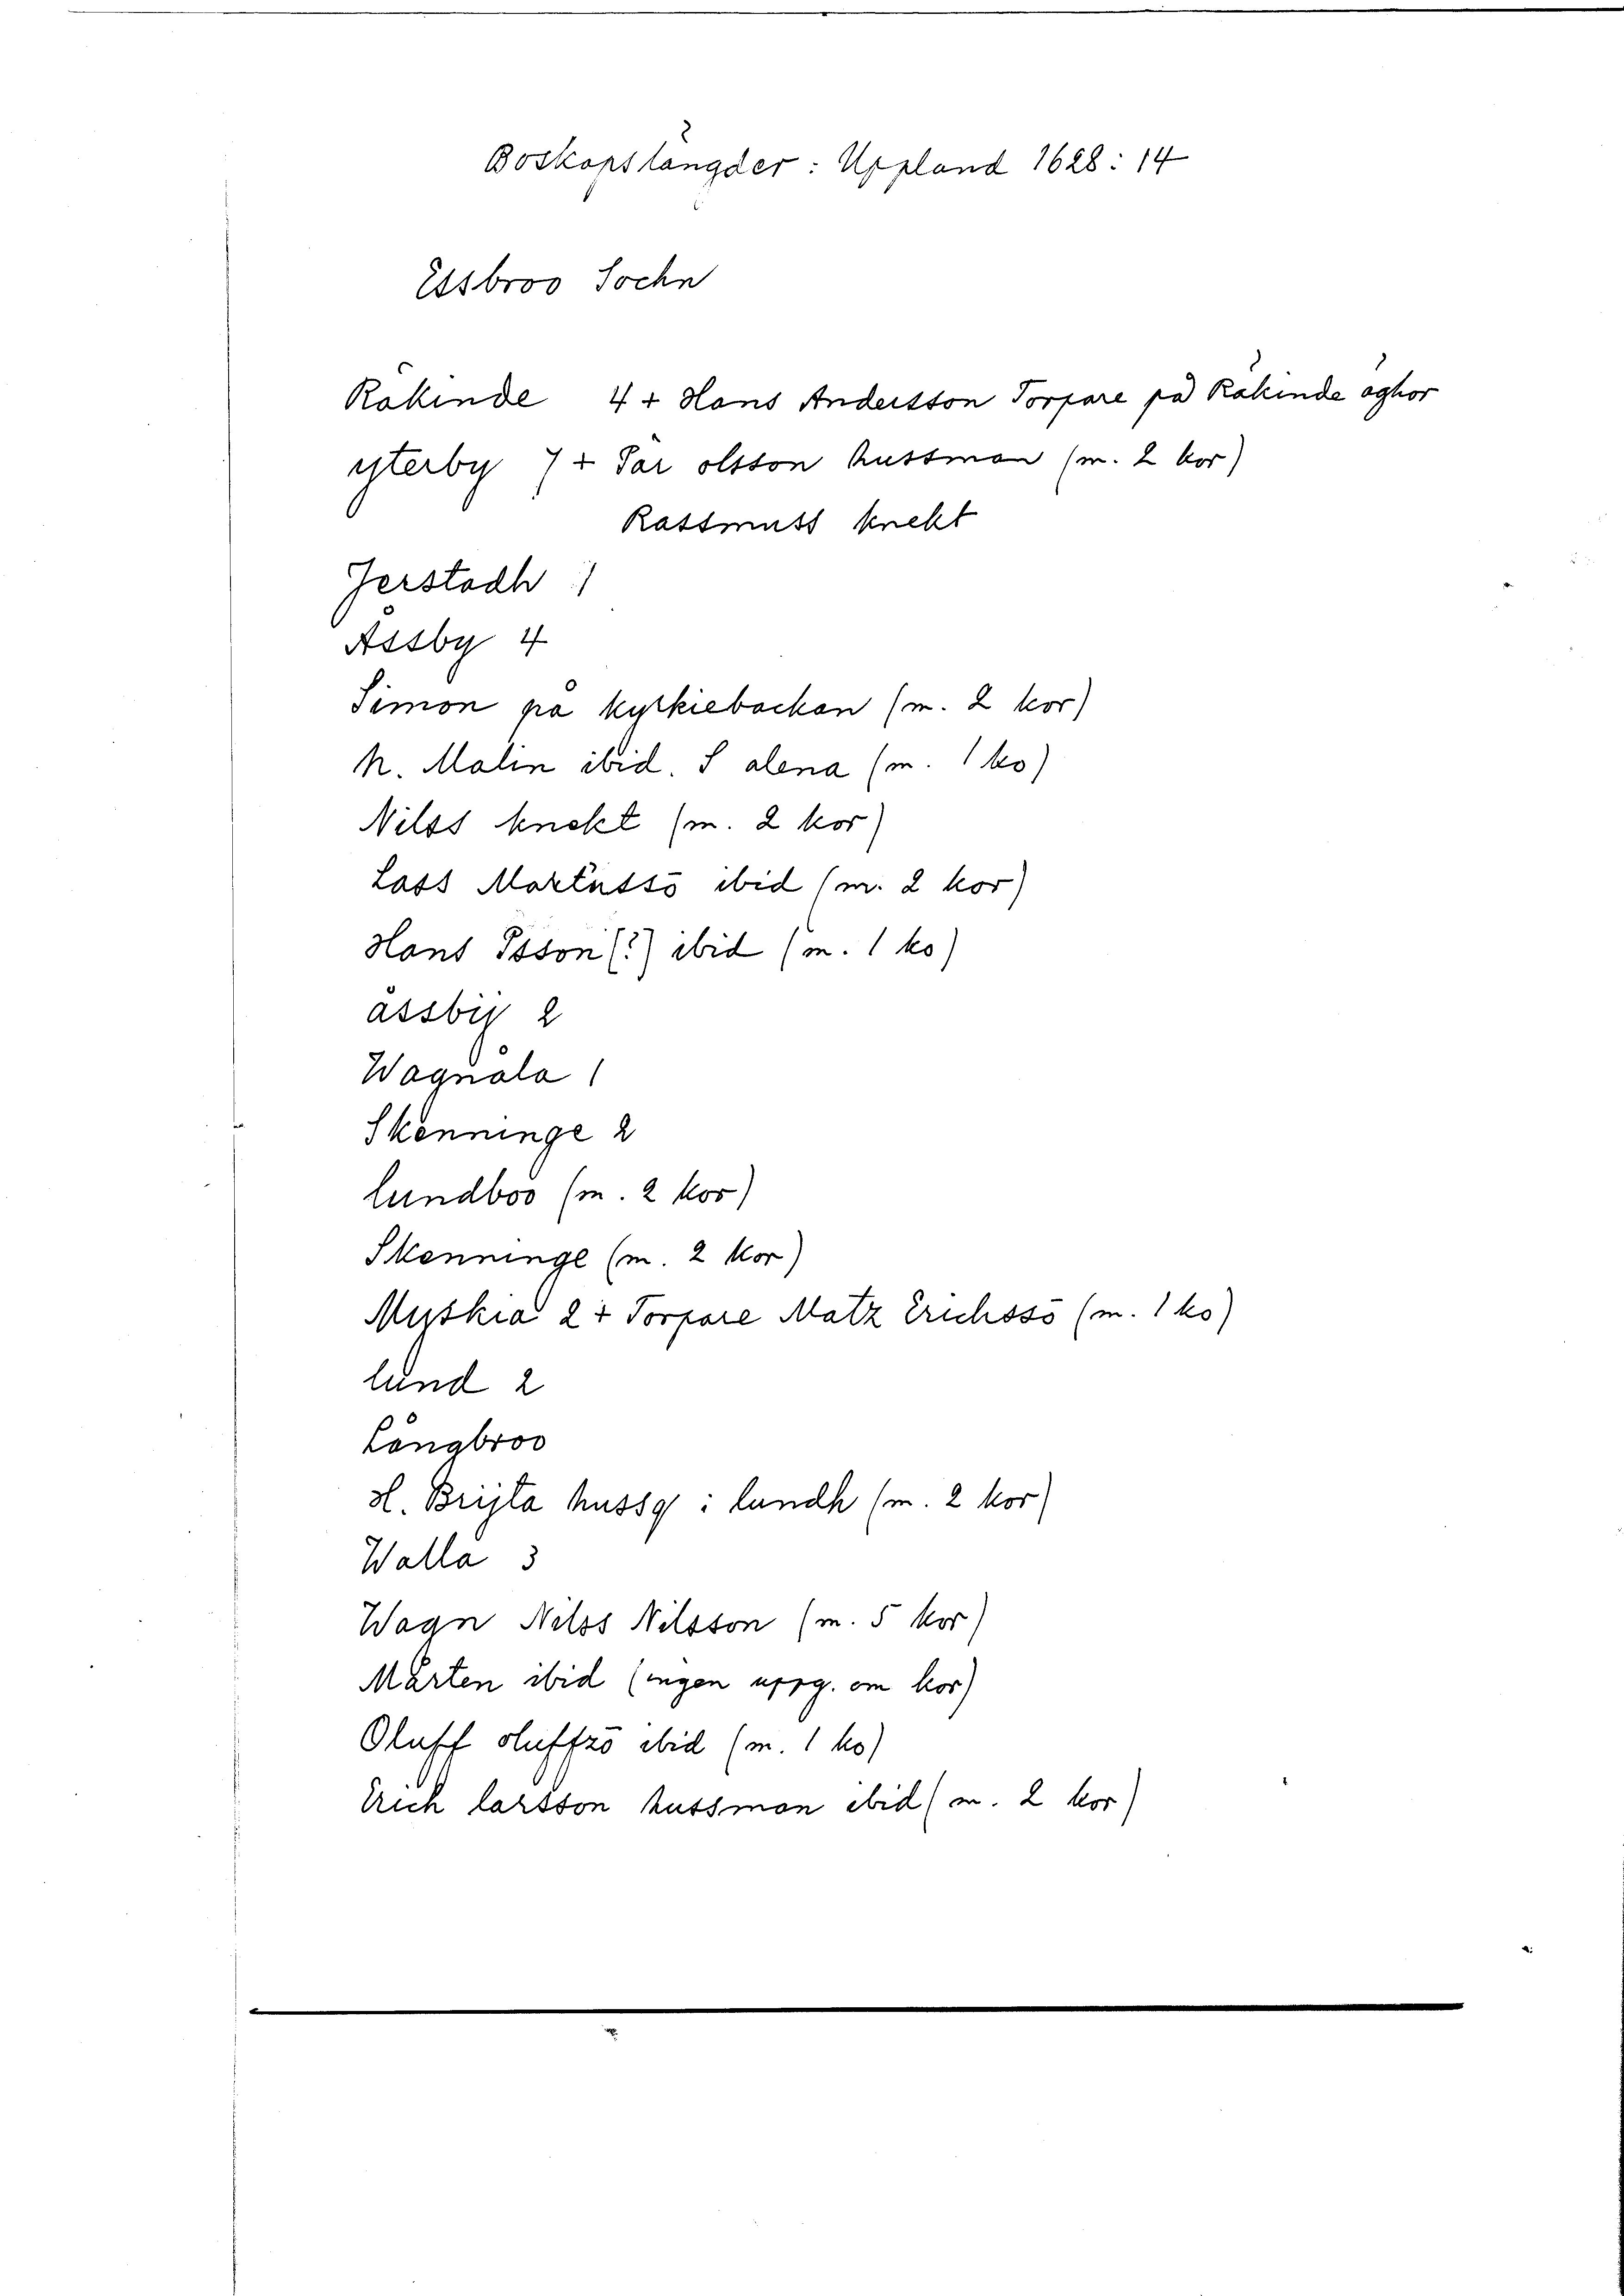 Boskapslängder: Uppland 1628:14
Essbroo Sochn
Råkinde 4 + Hans Andersson Torpare på Råkinde äghor
ysterby 7 + Pär olsson hussman (m. 2 kor)
Rassmuss knekt
Jerstadh 1
Åssby 4
Simon på kyrkiebackan (m. 2 kor)
h. Malin ibid. S alena (m. 1 ko)
Nilss knekt (m. 2 kor)
Lass Martusső ibid (m. 2 kor)
Hans Isson (?) ibid (m. 1 ko)
åssby 2
Wagnåla 1
Skenninge 2
lundboo (m. 2 kor)
Skenninge (m. 2 kor)
Myskia 2 + Torpare Matz Erichssō (m. 1 ko)
lund 2
Långbroo
H. Brijta hussq: lundh (m. 2 kor)
Walla 3
Wagn Nilss Nilsson (m. 5 kor)
Mårten ibid (ingen uppg. om kor)
Oluff oluffzō ibid (m. 1 ko)
Erich larsson hussman ibid (m. 2 kor)